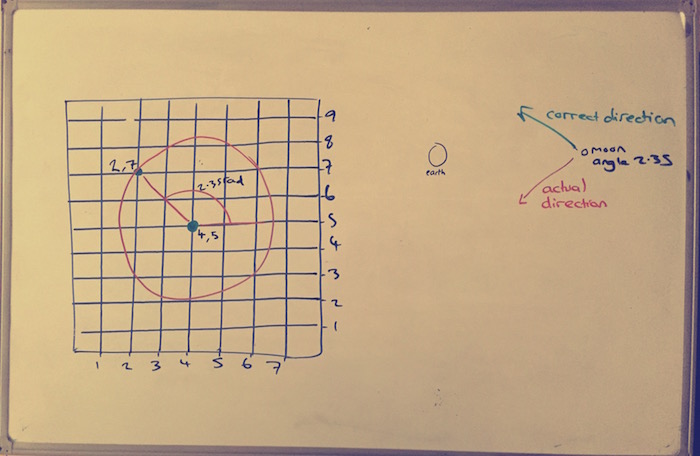 9
8
7
6
5
4
3
2
1
1 2 3 4 5 6 7
2,7
2.35rad
4,5
earth
correct direction
moon
angle 2.35
actual
direction